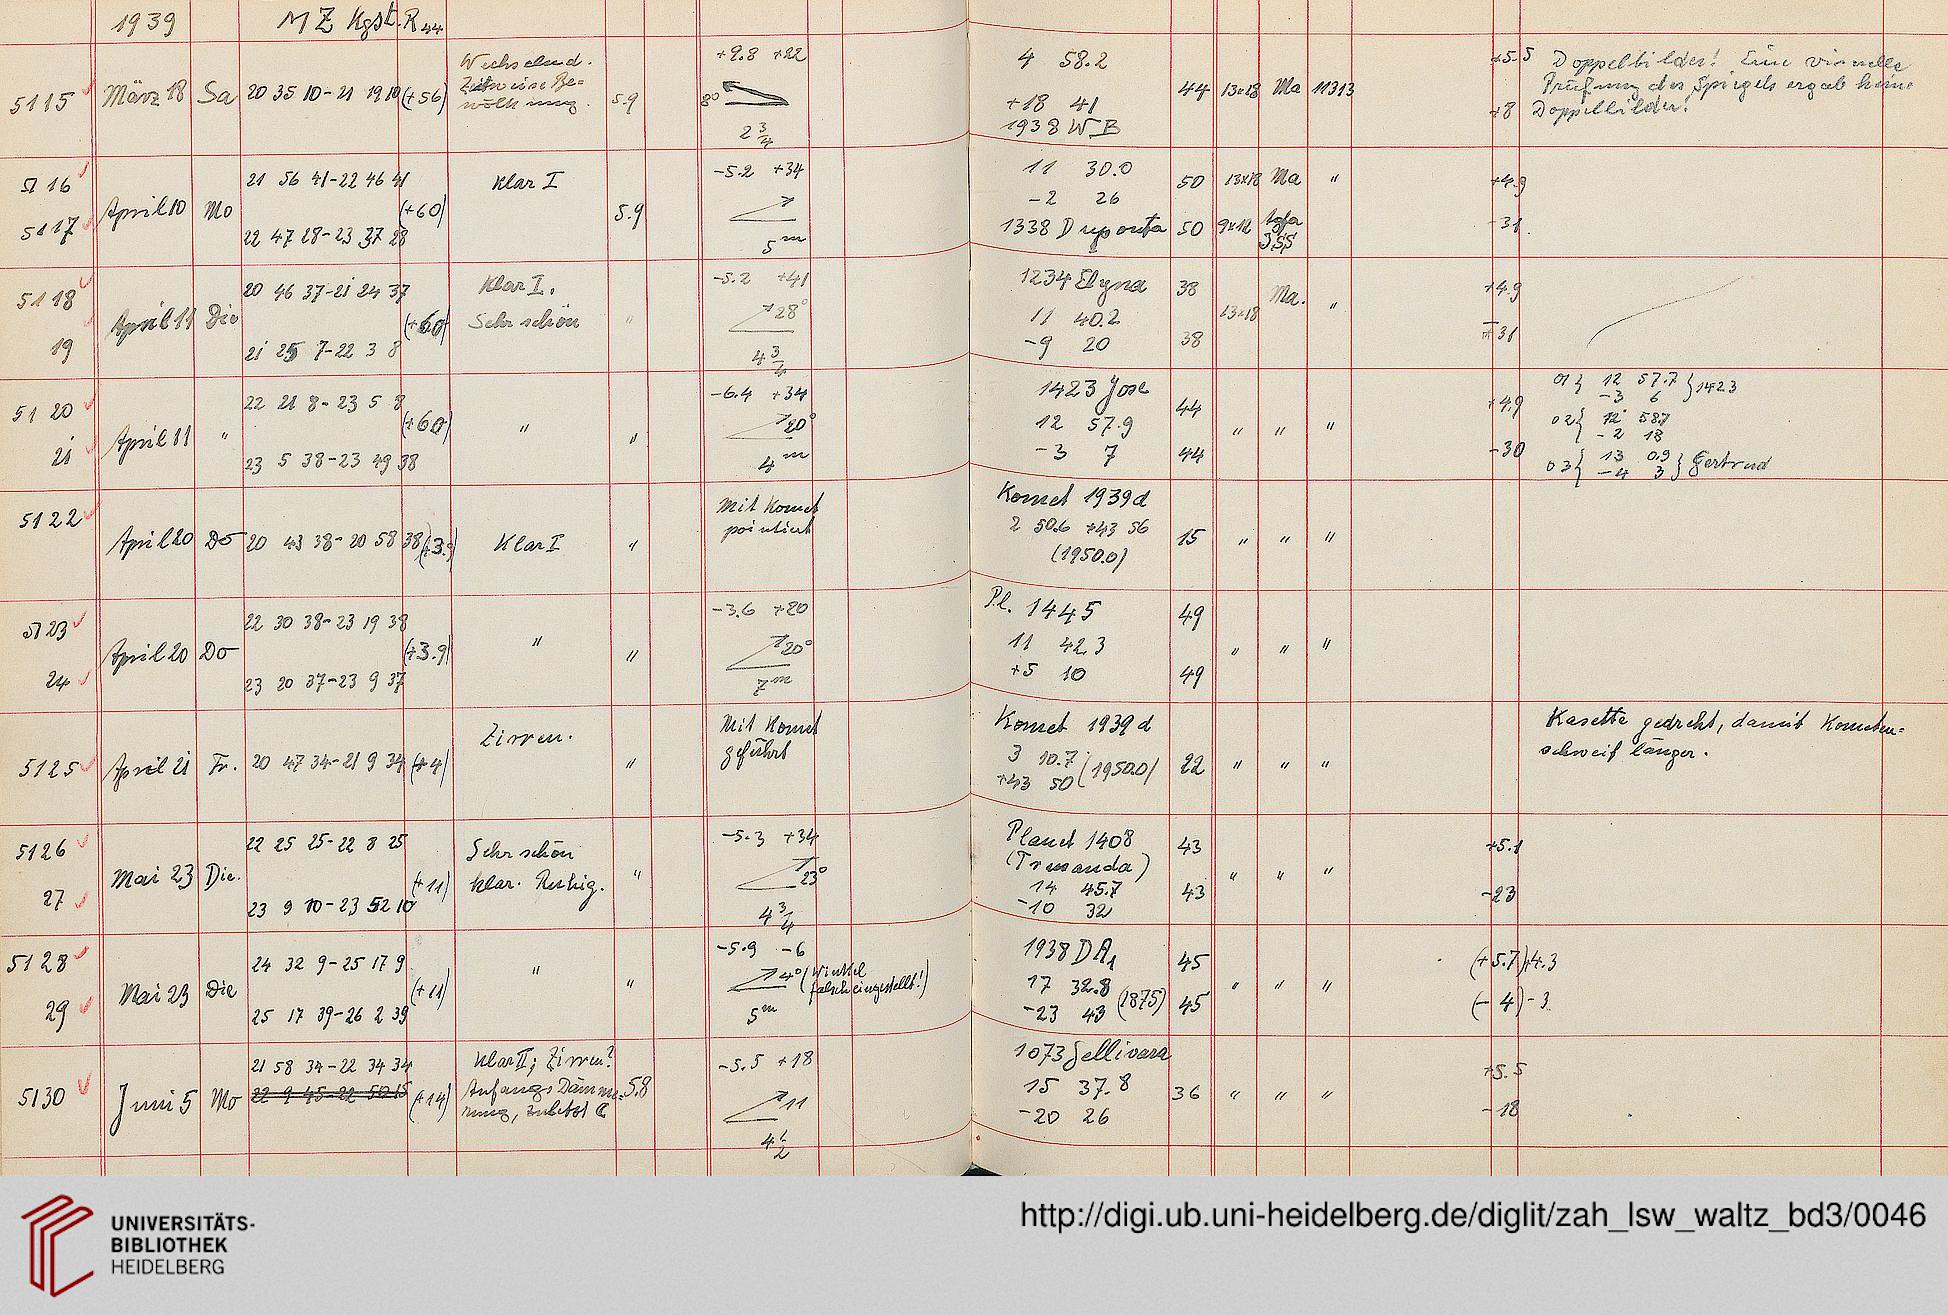 1939 MZ Kgst. R44
5115 März 18 Sa 20 35 10-21 19 10 (+56)
Wechselnd.
Zeitweise Be-
wölkung.
5.9
+9.8 +22
8°
2 3/4
4 58.2
+18 41
1938 WB
44 13x18 Ma 11313
+5.5
+8
Doppelbilder! Eine visuelle
Prüfung des Spiegels ergab keine
Doppelbilder!
5116
5117
April 10 Mo
21 56 41-22 46 41
(+60)
22 47 28-23 37 28
Klar I
5.9
-5.2 +34
5m
11 30.0
-2 26
1338 Duponta
50 13x18 Ma "
50 9x12 Agfa
ISS
+4.9
-31.
5118
19
April 11 Die
20 46 37-21 24 37
(+60)
21 25 7-22 3 8
Klar I.
Sehr schön
"
-5.2 +41
28°
4 3/4
1234 Elyna
11 40.2
-9 20
38
38
13x18 Ma. "
+4.9
-31
5120
21
April 11 "
22 21 8-23 5 8
(+60)
23 5 38-23 49 38
" "
-6.4 +34
20°
4m
1423 Jose
12 57.9
-3 7
44
44
" " "
+4.9
-30
01} 12 57.7
-3 6 }1423
02{ 12 58.7
-2 18
03{ 13 0.9
-4 3 } Gertrud
5122
April 20 Do 20 43 38-20 58 38 (+3.9)
Klar I "
Mit Komet
pointiert
Komet 1939d
2 50.6 +43 56
(1950.0)
15 " " "
5123
24
April 20 Do
22 30 38-23 19 38
(+3.9)
23 20 37-23 9 37
" "
-3.6 +20
20°
7m
Pl. 1445
11 42.3
+5 10
49
49
" " "
5125 April 21 Fr. 20 47 34-21 9 34 (+4)
Zirren.
"
Mit Komet
geführt
Komet 1939 d
3 10.7
+43 50 (1950.0)
22 " " "
Kasette gedreht, damit Kometen-
schweif länger.
5126
27
Mai 23 Die.
22 25 25-22 8 25
(+11)
23 9 10-23 52 10
Sehr schön
klar. Ruhig.
"
-5.3 +34
23°
4 3/4
Planet 1408
(Trusanda)
14 45.7
-10 32
43
43
" " "
+5.1
-23
5128
29
Mai 23 Die
24 32 9-25 17 9
(+11)
25 17 39-26 2 39
" "
-5.9 -6
4° (Winkel
falsch eingestellt!)
5m
1938 DA1
17 32.8
-23 43 (1875)
45
45
" " "
(+5.7)+4.3
(-4)-3
5130
Juni 5 Mo
21 58 34-22 34 34
22 9 45-22 50 15
(+14)
Klar II; Zirren?
Anfangs Dämme-
rung, zuletzt ☾
5.8
-5.5 +18
11
4 1/2
1073 Gellivara
15 37.8
-20 26
36 " " "
+5.5
-18
UNIVERSITÄTS-
BIBLIOTHEK
HEIDELBERG
http://digi.ub.uni-heidelberg.de/diglit/zah_lsw_waltz_bd3/0046